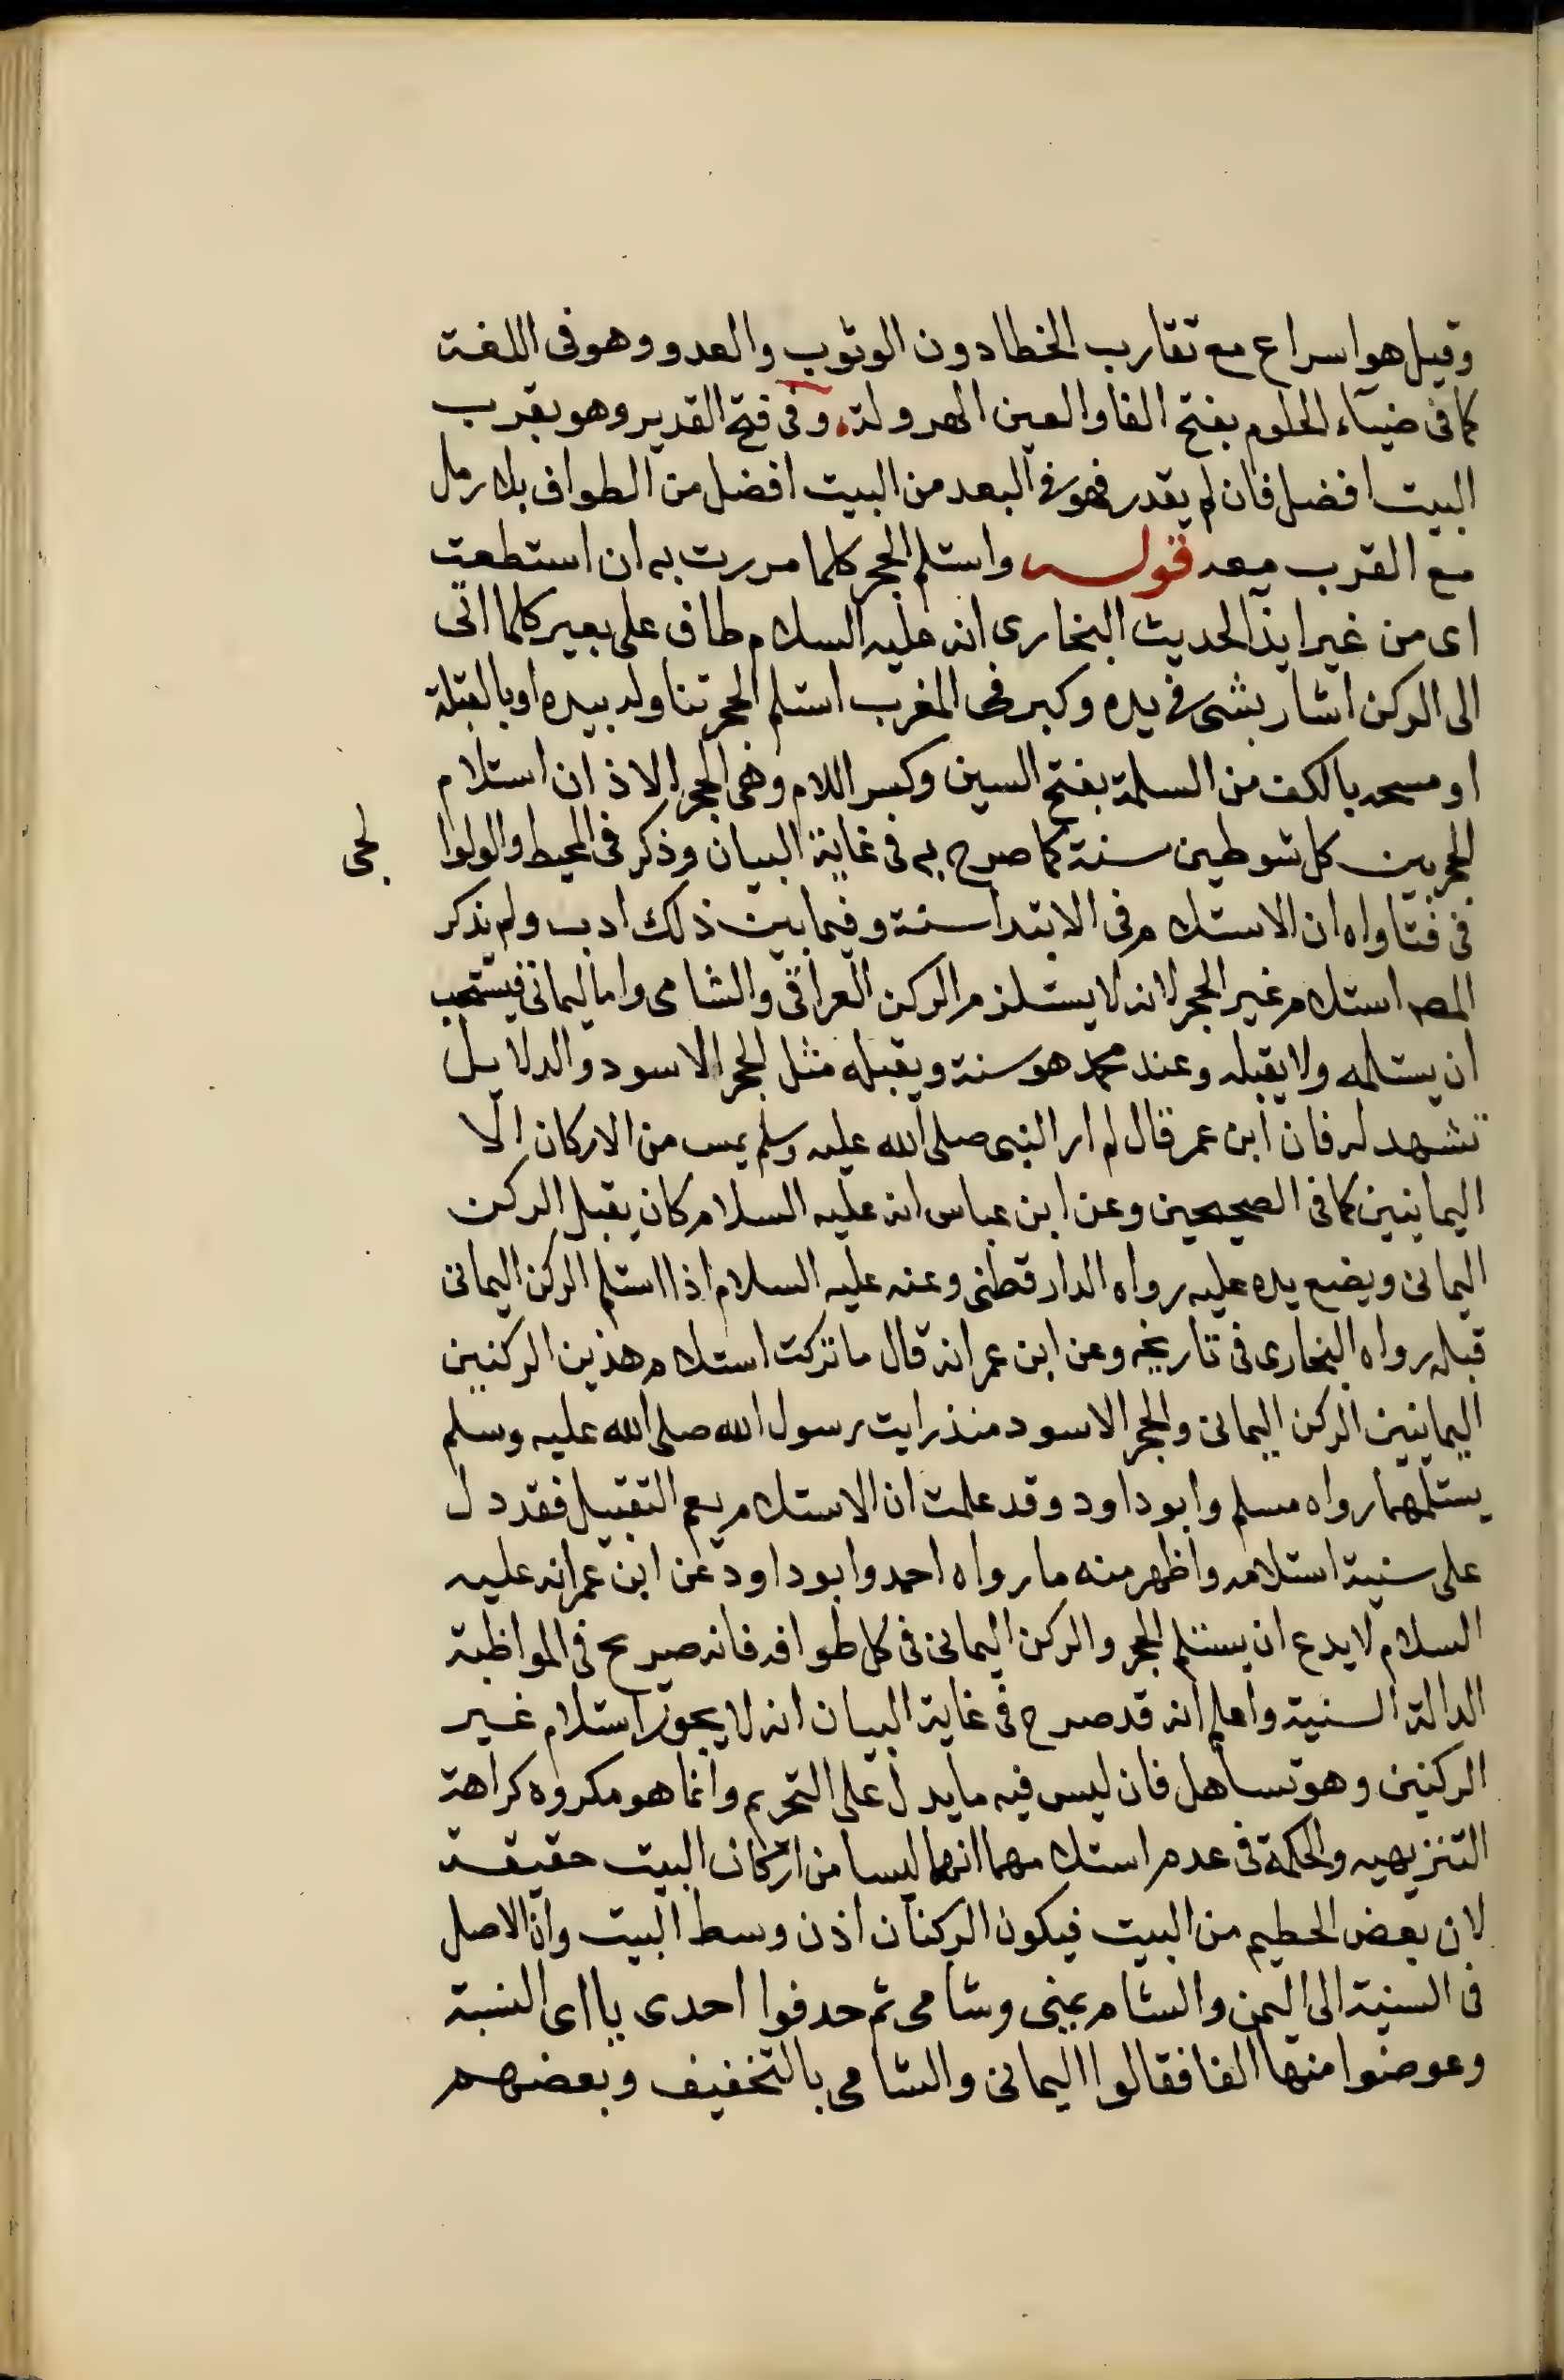 وقيل هو اسراع مع تقارب الخطا دون الوثوب والعدو وهو فى اللغة
كما فى ضياء الحلوم بفتح الفا والعين الهرولة وفى فتح القدير وهو بقرب
البيت افضل فان لم يقدر فهو فى البعد من البيت افضل من الطواف بلا رمل
مع القرب منه قوله واستلم الحجر كلما مررت به ان استطعت
اى من غير ايذا لحديث البخارى انه عليه السلام طاف على بعير كلما اتى
الى الركن اشار بشى فى يده وكبر فى المغرب استلم الحجر تناوله بيده او بالقبلة
او مسحه بالكف من السلمة بفتح السين وكسر اللام وهى الحجر الا ذ ان استلام
الحجر بين كل شوطين سنة كما صرح به فى غاية البيان وذكر فى المحيط والولوا لجى
فى فتاواه ان الاستلام فى الابتدا سنة وفيما بين ذلك ادب ولم يذكر
المص استلام غير الحجر لانه لا يستلزم الركن العراقى والشامى واما اليمانى فيستحب
ان يستلمه ولا يقبله وعند محمد هو سنة ويقبله مثل الحجر الاسود والدلايل
تشهد له فان ابن عمر قال لم ار النبى صلى الله عليه وسلم يمس من الاركان الا
اليمانيين كما فى الصحيحين وعن ابن عباس انه عليه السلام كان يقبل الركن
اليمانى ويضع يده عليه رواه الدارقطنى وعنه عليه السلام اذا استلم الركن اليمانى
قبله رواه البخارى فى تاريخه وعن ابن عمر انه قال ما تركت استلام هذين الركنين
اليمانيين الركن اليمانى والحجر الاسود منذ رايت رسول الله صلى الله عليه وسلم
يستلمهما رواه مسلم وابو داود وقد علمت ان الاستلام يعم التقبيل فقد دل
على سنية استلامه واظهر منه ما رواه احمد وابو داود عن ابن عمر انه عليه
السلام لا يدع ان يستلم الحجر والركن اليمانى فى كل طوافه فانه صريح فى المواظبة
الدالة السنية واعلم انه قد صرح فى غاية البيان انه لا يجوز استلام غير
الركنين وهو تساهل فان ليس فيه ما يدل على التحريم وانما هو مكروه كراهة
التنزيهيه والحكمة فى عدم استلامهما انهما ليسا من اركان البيت حقيقة
لان بعض الحطيم من البيت فيكون الركنان اذن وسط البيت وان الاصل
فى السنية الى اليمن والشام يمنى وشامى ثم حدفوا احدى يا اى النسبة
وعوضوا منها الفا فقالوا اليمانى والشامى بالتخفيف وبعضهم